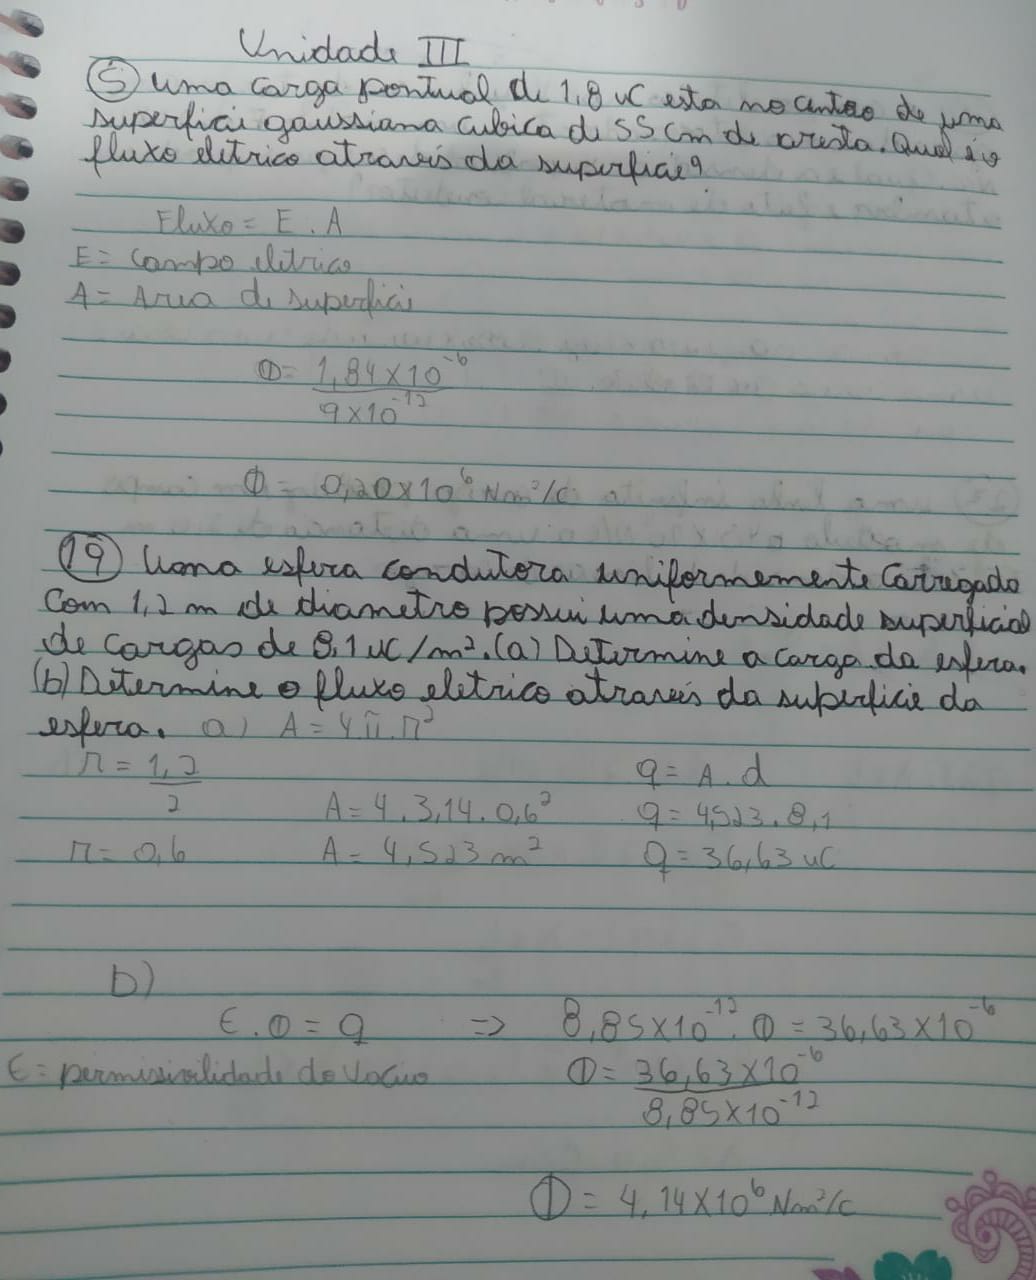 Unidade III
⑤ Uma carga pontual de 1,8 uC esta no centro de uma
superficie gaussiana cubica de 55 cm de aresta. Qual é o
fluxo eletrico através da superficie?
Fluxo = E . A
E = Campo eletrico
A = Area de superficie
Φ = 1,84 x 10⁻⁶
9 x 10⁻¹²
Φ = 0,20 x 10⁶ Nm²/C
⑲ Uma esfera condutora uniformemente Carregado
Com 1,2 m de diametro possui uma densidade superficial
de Cargas de 8,1 uC/m². (a) Determine a carga da esfera.
(b) Determine o fluxo eletrico através da superficie da
esfera. a) A = 4π.r²
r = 1,2
2
q = A . d
A = 4 . 3,14 . 0,6²
q = 4,523 . 8,1
r = 0,6
A = 4,523 m²
Q = 36,63 uC
b)
ε . Φ = q => 8,85 x 10⁻¹² . Φ = 36,63 x 10⁻⁶
ε = permissivilidade do Vacuo
Φ = 36,63 x 10⁻⁶
8,85 x 10⁻¹²
Φ = 4,14 x 10⁶ Nm²/C